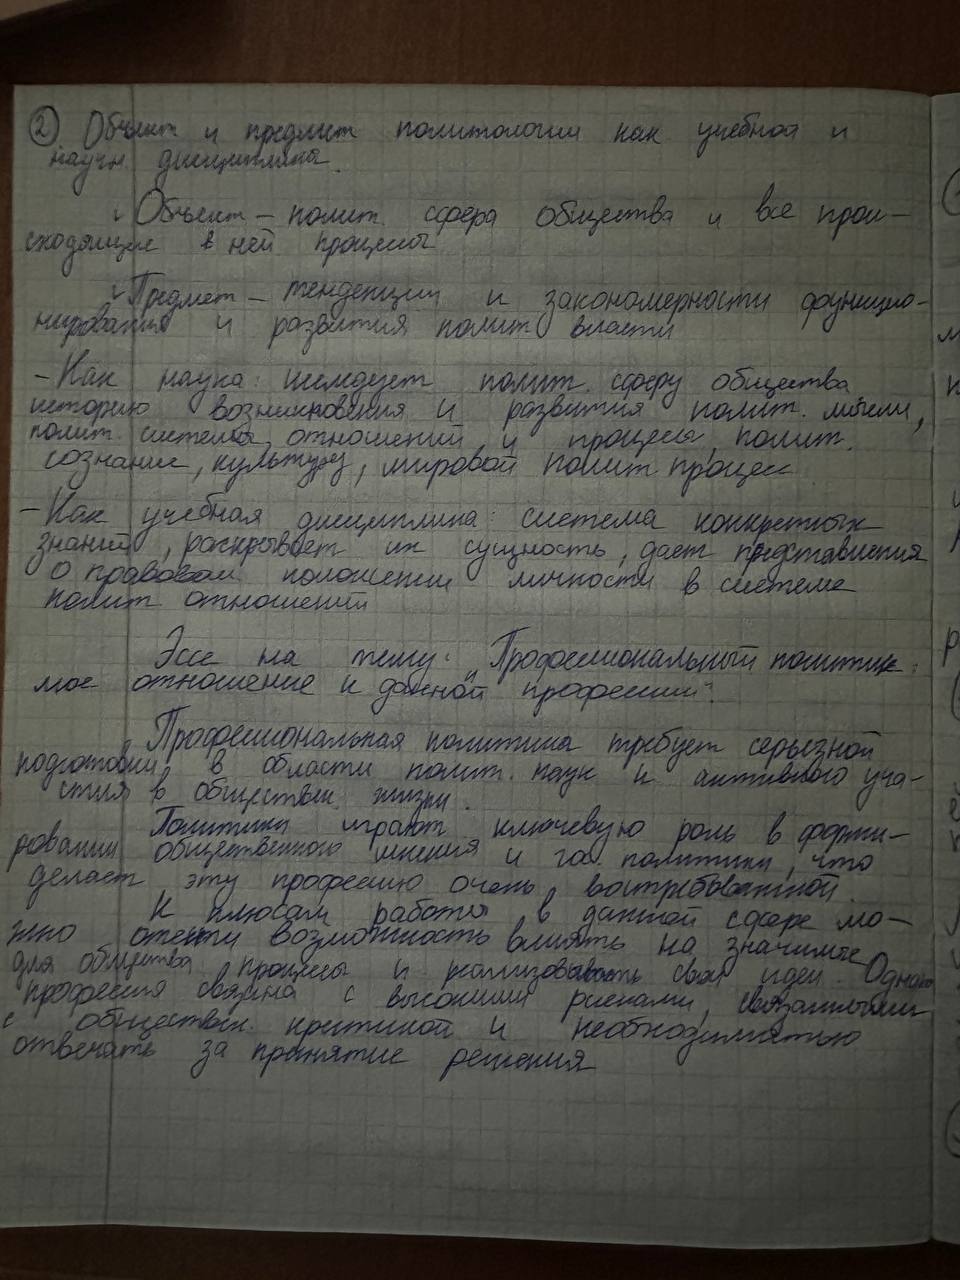 ② Объект и предмет политологии как учебной и
научн дисциплина.
Объект – полит. сфера общества и все прои-
сходящие в ней процессы
Предмет – тенденции и закономерности функцио-
нирования и развития полит власти
– Как наука: исследует полит. сферу общества
историю возникновения и развития полит. мысли,
полит. система, отношений и процессы, полит.
сознание, культуру, мировой полит процесс
– Как учебная дисциплина: система конкретных
знаний, раскрывает их сущность, дает представления
о правовом положении личности в системе
полит отношений
Эссе на тему: „Профессиональный политик:
мое отношение к данной профессии"
Профессиональная политика требует серьезной
подготовки в области полит. наук и активного уча-
стия в обществен. жизни.
Политики играют ключевую роль в форми-
ровании общественного мнения и гос. политики, что
делает эту профессию очень востребованной.
К плюсам работы в данной сфере мо-
жно отнести возможность влиять на значимые
для общества процессы и реализовывать свои идеи. Однако
профессия связана с высокими рисками, связанными
с обществен. критикой и необходимостью
отвечать за принятие решения